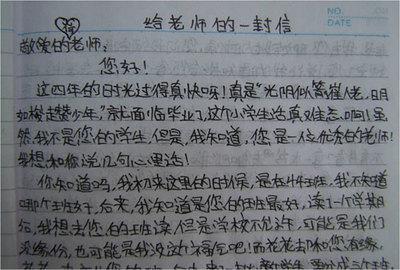 NO.
DATE
给老师的一封信
敬爱的老师:
您好!
这四年的时光过得真快呀!真是“光阴似箭催人老,日月
如梭趱少年。”就面临毕业了,这个小学生活真难忘啊!虽
然,我不是您的学生,但是,我知道,您是一位优秀的老师!
我想和你说几句心里话!
你知道吗,我初来这里的时候,是在4班,我不知道
哪个班好,后来,我知道是您的班最好,读了一个学期
后,我想去您的班读,但是学校不允许,可能是我们
没缘份,也可能是我没这个福气吧!而花花却和您有缘,